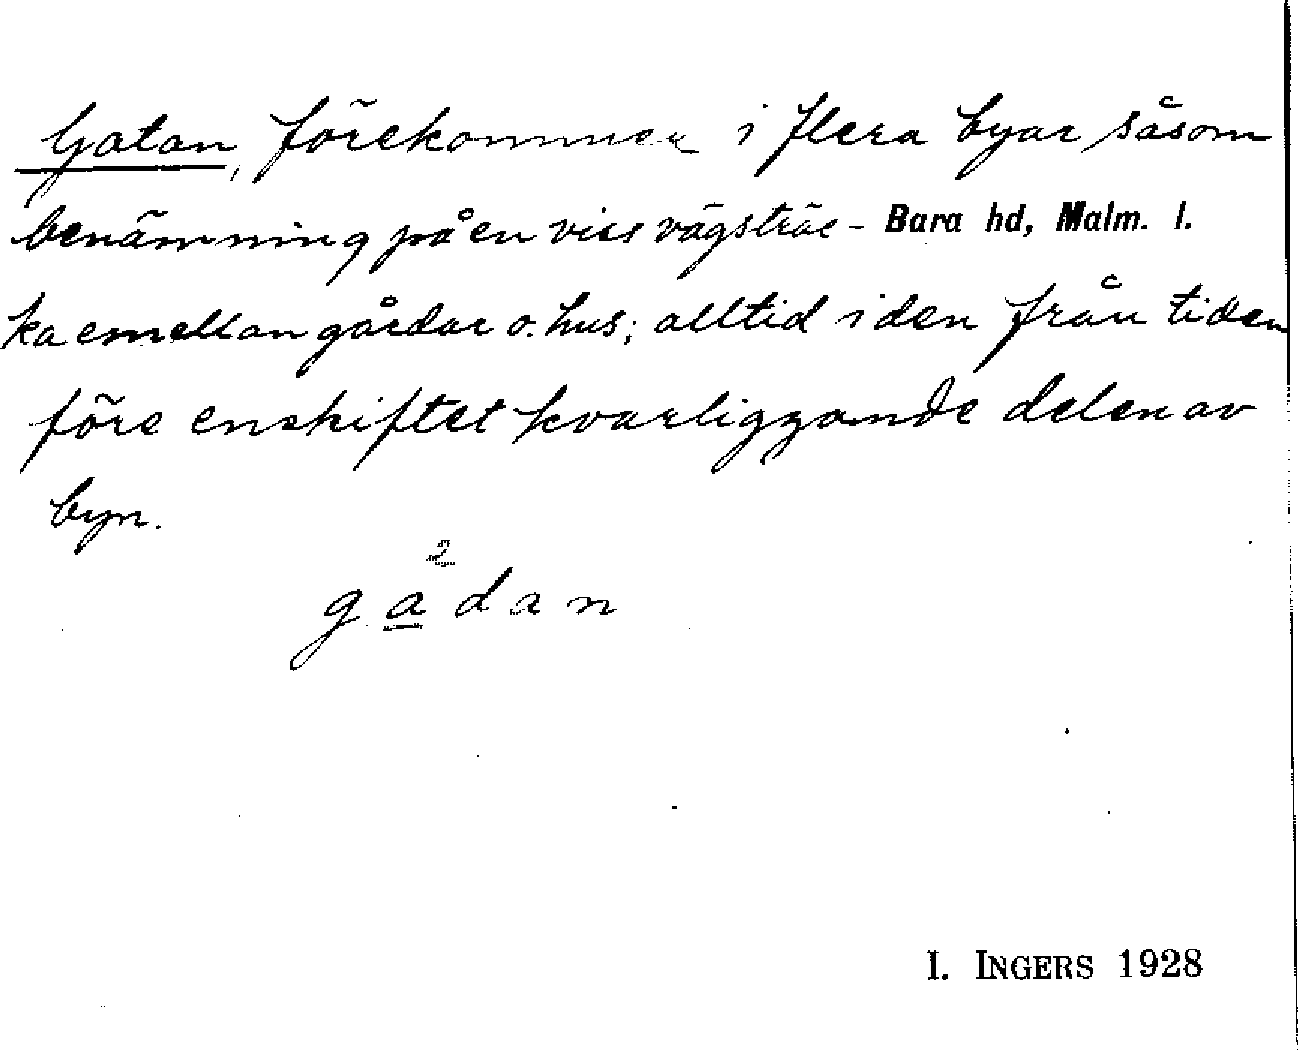 Gatan, förekommer i flera byar såsom
benämning på en viss vägsträc- Bara hd, Malm. l.
ka emellan gårdar o. hus; alltid i den från tiden
före enskiftet kvarliggande delen av
byn.
2
gadan
I. INGERS 1928